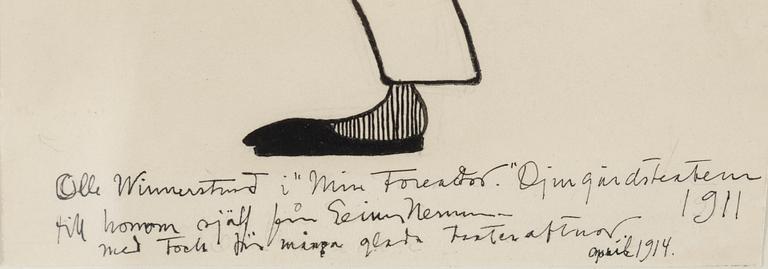 Olle Winnerstrand i "Min Fore..." Djurgårdsteatern
1911
till honom själf från Einar Nerman
med tack för många glada teateraftnar.
april 1914.